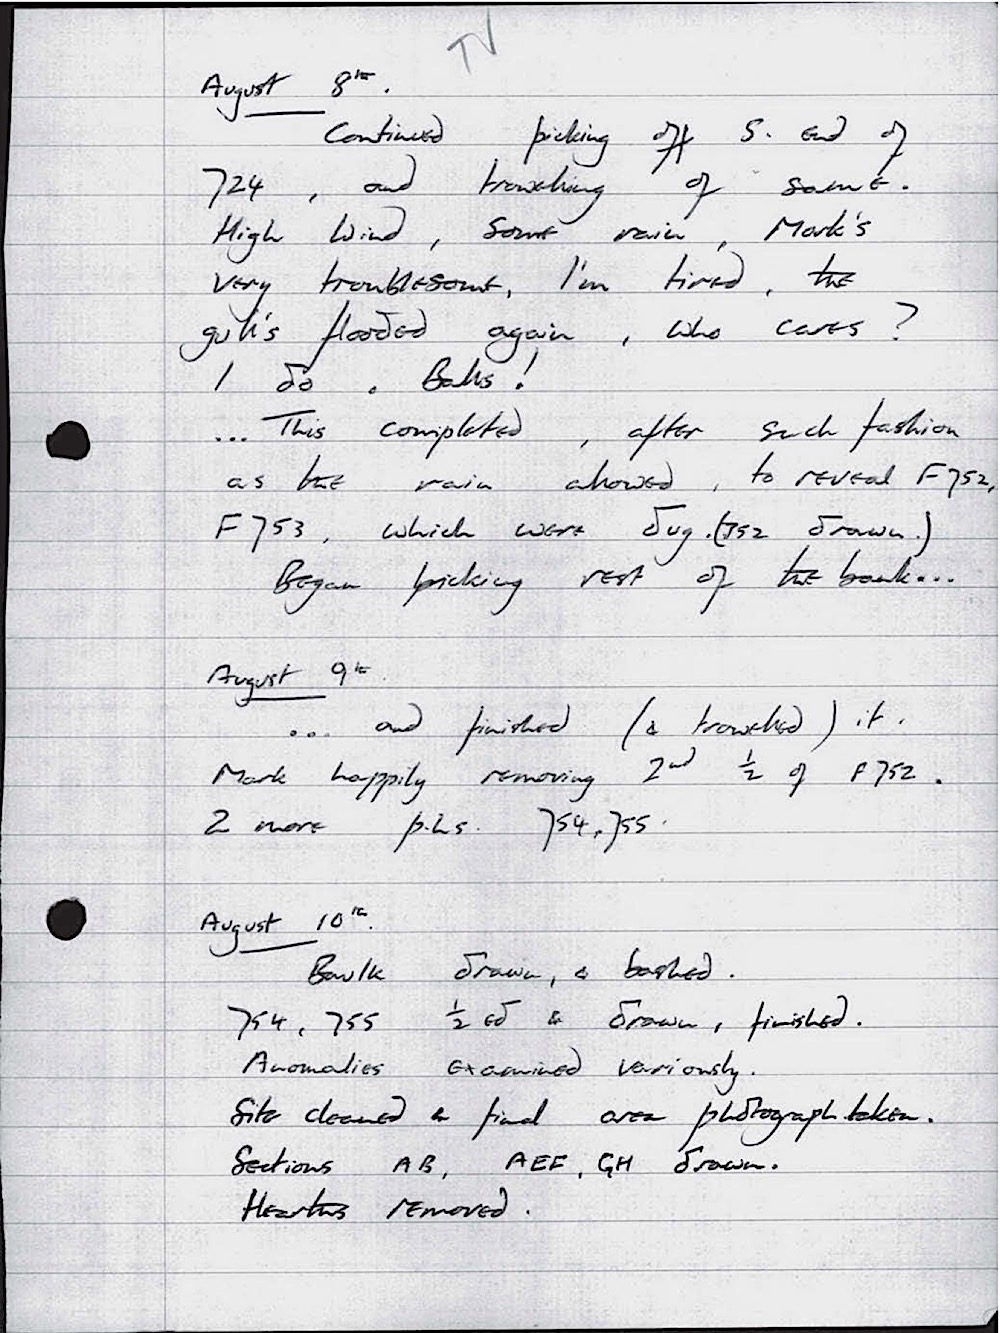 TV
August 8th.
Continued picking off S. end of
724, and trowelling of same.
High wind, some rain, Mark's
very troublesome, I'm tired, the
gully's flooded again, who cares?
I do. Balls!
... This completed, after such fashion
as the rain allowed, to reveal F752,
F753, which were dug. (752 drawn.)
Began picking rest of the bank...
August 9th
... and finished (& trowelled) it.
Mark happily removing 2nd ½ of F752.
2 more p.h.s. 754, 755.
August 10th.
Baulk drawn, & bashed.
754, 755 ½ed & drawn, finished.
Anomalies examined variously.
Site cleaned & final area photograph taken.
Sections AB, AEF, GH drawn.
Hearths removed.